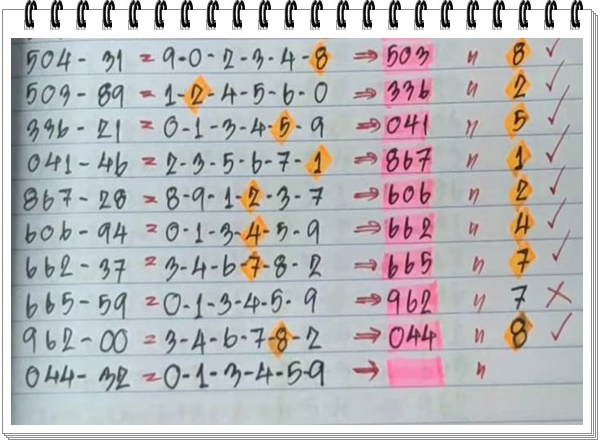 504 - 31 = 9-0-2-3-4-8 ⇒ 503 ท 8 ✓
503 - 89 = 1-2-4-5-6-0 ⇒ 336 ท 2 ✓
336 - 21 = 0-1-3-4-5-9 ⇒ 041 ท 5 ✓
041 - 46 = 2-3-5-6-7-1 ⇒ 867 ท 1 ✓
867 - 28 = 8-9-1-2-3-7 ⇒ 606 ท 2 ✓
606 - 94 = 0-1-3-4-5-9 ⇒ 662 ท 4 ✓
662 - 37 = 3-4-6-7-8-2 ⇒ 665 ท 7 ✓
665 - 59 = 0-1-3-4-5-9 ⇒ 962 ท 7 ✗
962 - 00 = 3-4-6-7-8-2 ⇒ 044 ท 8 ✓
044 - 32 = 0-1-3-4-5-9 ⇒ ท